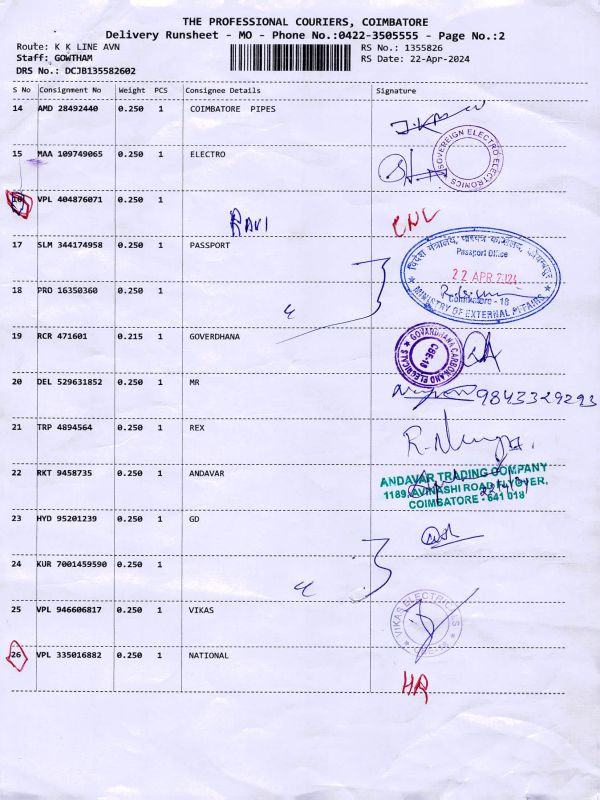 THE PROFESSIONAL COURIERS, COIMBATORE
Delivery Runsheet - MO - Phone No.:0422-3505555 - Page No.:2
Route: K K LINE AVN
RS No.: 1355826
Staff: GOWTHAM
RS Date: 22-Apr-2024
DRS No.: DCJB135582602
S No Consignment No Weight PCS Consignee Details Signature
14 AMD 28492440 0.250 1 COIMBATORE PIPES
15 MAA 109749065 0.250 1 ELECTRO
SOVEREIGN ELECTRO ELECTRONICS
16 VPL 404876071 0.250 1
RAVI
CNL
17 SLM 344174958 0.250 1 PASSPORT
Passport Office
22 APR 2024
Coimbatore - 18
MINISTRY OF EXTERNAL AFFAIRS
18 PRO 16350360 0.250 1
19 RCR 471601 0.215 1 GOVERDHANA
GOVARDHANA CARBON AND ELECTRICALS
CBE-18
20 DEL 529631852 0.250 1 MR
9843329293
21 TRP 4894564 0.250 1 REX
22 RKT 9458735 0.250 1 ANDAVAR
ANDAVAR TRADING COMPANY
1189, AVINASHI ROAD FLYOVER,
COIMBATORE - 641 018
23 HYD 95201239 0.250 1 GD
24 KUR 7001459590 0.250 1
25 VPL 946606817 0.250 1 VIKAS
VIKAS ELECTRICALS
26 VPL 335016882 0.250 1 NATIONAL
HR